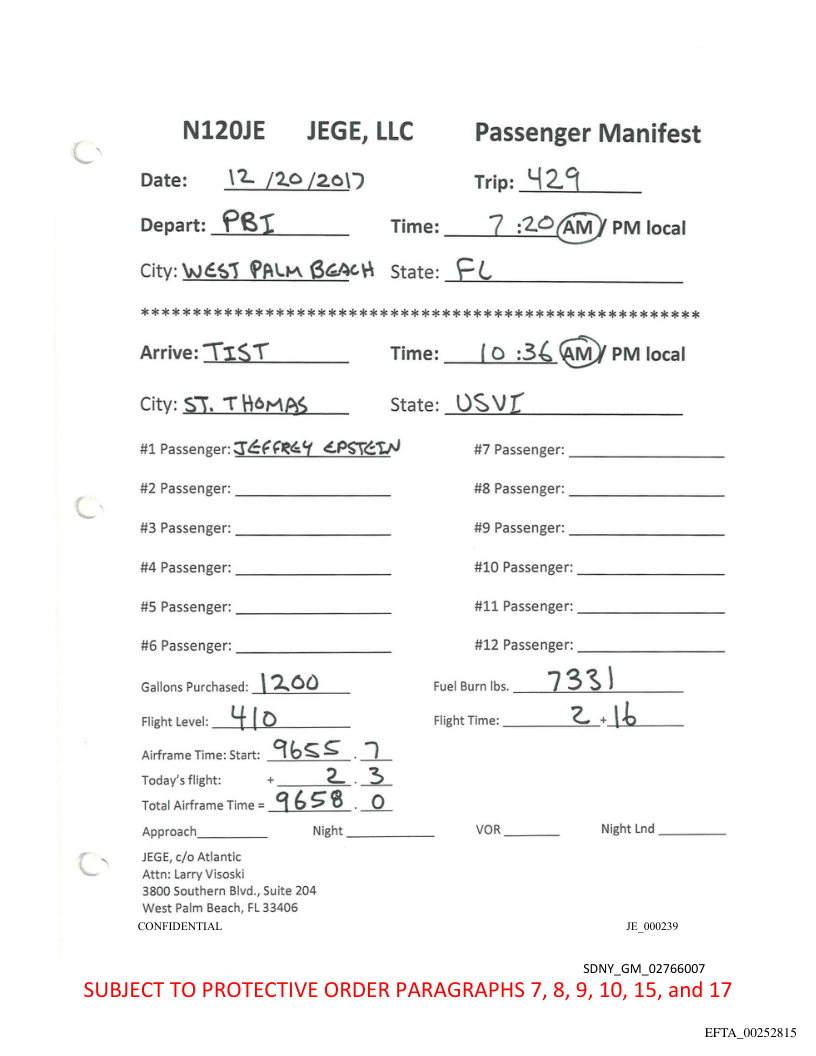 N120JE JEGE, LLC Passenger Manifest
Date: 12 /20 /2017 Trip: 429
Depart: PBI Time: 7 :20 AM / PM local
City: WEST PALM BEACH State: FL
******************************************************
Arrive: TIST Time: 10 :36 AM / PM local
City: ST. THOMAS State: USVI
#1 Passenger: JEFFREY EPSTEIN #7 Passenger:
#2 Passenger: #8 Passenger:
#3 Passenger: #9 Passenger:
#4 Passenger: #10 Passenger:
#5 Passenger: #11 Passenger:
#6 Passenger: #12 Passenger:
Gallons Purchased: 1200 Fuel Burn lbs. 7331
Flight Level: 410 Flight Time: 2 + 16
Airframe Time: Start: 9655 . 7
Today's flight: + 2 . 3
Total Airframe Time = 9658 . 0
Approach Night VOR Night Lnd
JEGE, c/o Atlantic
Attn: Larry Visoski
3800 Southern Blvd., Suite 204
West Palm Beach, FL 33406
CONFIDENTIAL JE_000239
SDNY_GM_02766007
SUBJECT TO PROTECTIVE ORDER PARAGRAPHS 7, 8, 9, 10, 15, and 17
EFTA_00252815